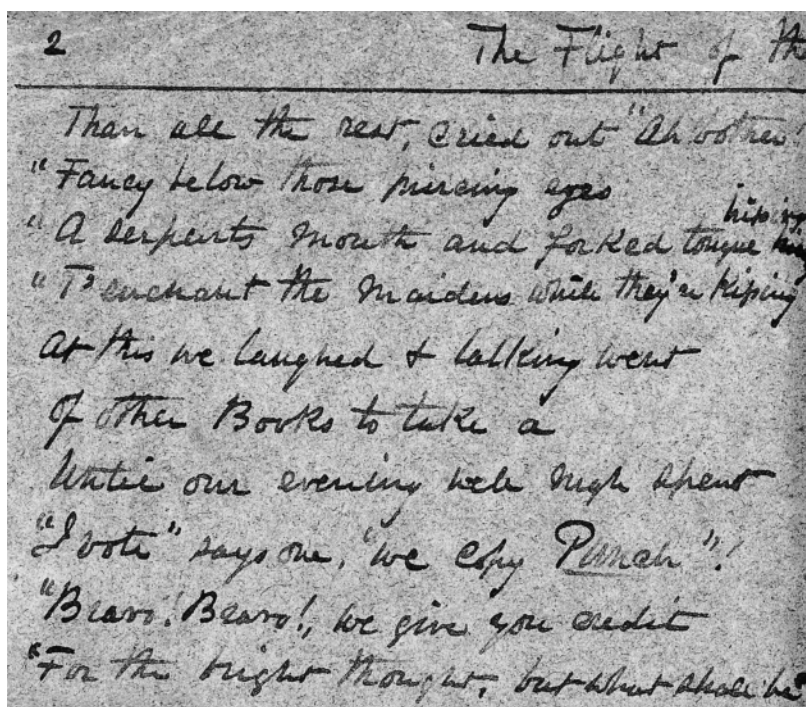 2 The Flight of th
Than all the rest, cried out "Ah bother!
"Fancy below those piercing eyes
hissing
"A serpents mouth and forked tongue
"T'enchant the Maidens while they're Kissing
At this we laughed & talking went
Of other Books to take a
Until our evening well nigh spent
"I vote" says one, "we copy Punch"!
"Bravo! Bravo!, we give you credit
"For the bright thought, but what shall be